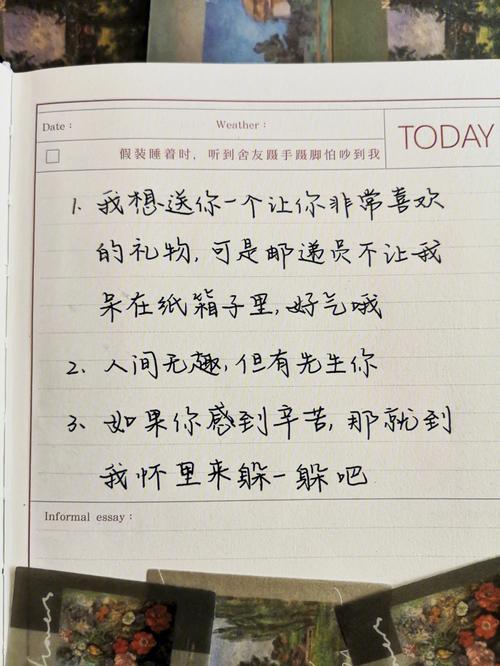 Date：
Weather：
TODAY
假装睡着时，听到舍友蹑手蹑脚怕吵到我
1. 我想送你一个让你非常喜欢
的礼物，可是邮递员不让我
呆在纸箱子里，好气哦
2. 人间无趣，但有先生你
3. 如果你感到辛苦，那就到
我怀里来躲一躲吧
Informal essay：